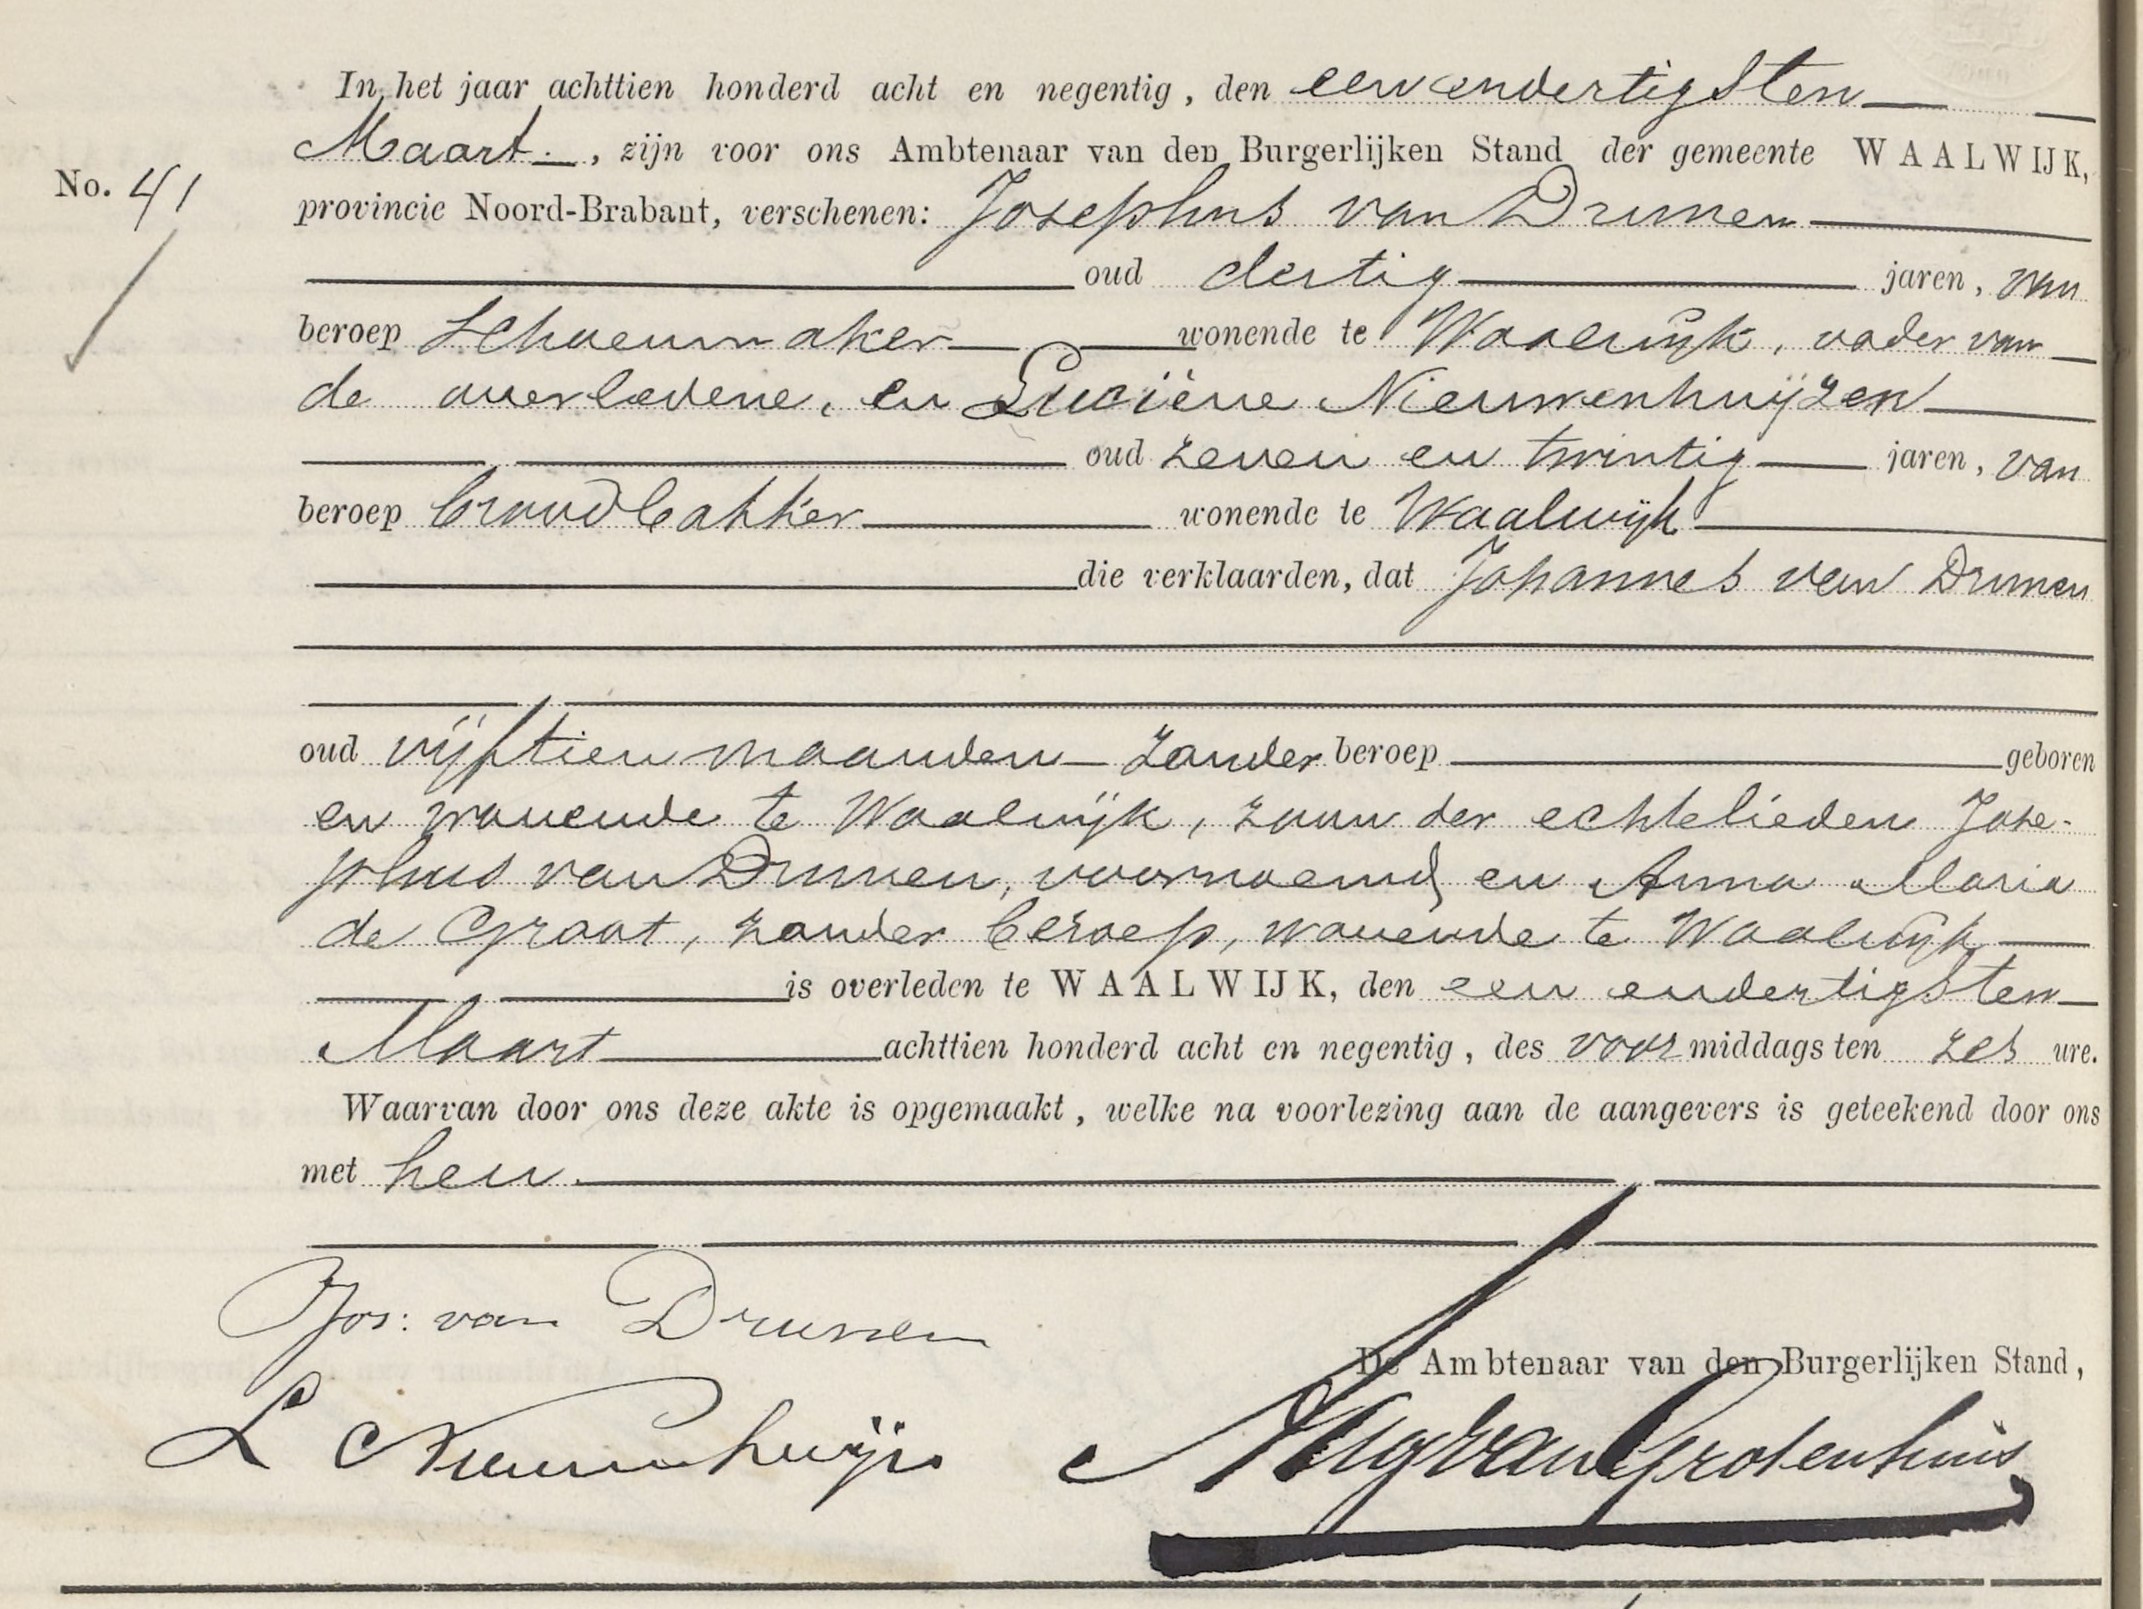 In het jaar achttien honderd acht en negentig, den een en dertigsten
Maart, zijn voor ons Ambtenaar van den Burgerlijken Stand der gemeente WAALWIJK,
No. 41
provincie Noord-Brabant, verschenen: Josephus van Drunen
oud dertig jaren, van
beroep schoenmaker wonende te Waalwijk, vader van
de overledene, en Luciëne Nieuwenhuijzen
oud zeven en twintig jaren, van
beroep broodbakker wonende te Waalwijk
die verklaarden, dat Johannes van Drunen
oud vijftien maanden zonder beroep geboren
en wonende te Waalwijk, zoon der echtelieden Jose-
phus van Drunen, voornoemd, en Anna Maria
de Groot, zonder beroep, wonende te Waalwijk
is overleden te WAALWIJK, den een en dertigsten
Maart achttien honderd acht en negentig, des voormiddags ten zes ure.
Waarvan door ons deze akte is opgemaakt, welke na voorlezing aan de aangevers is geteekend door ons
met hen.
Jos: van Drunen
De Ambtenaar van den Burgerlijken Stand,
L Nieuwenhuijs
van Grotenhuis